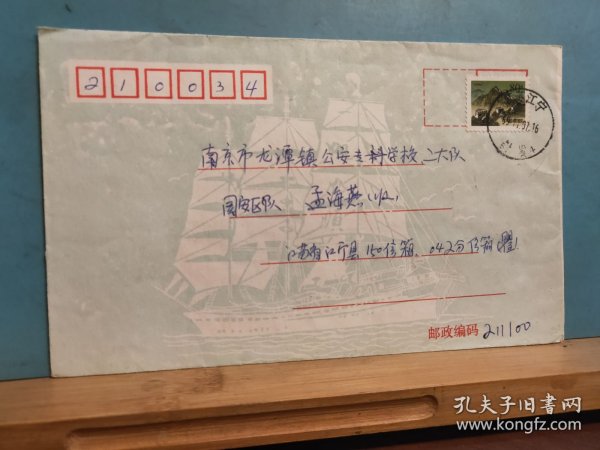 210034
江宁
南京市龙潭镇公安专科学校二大队
国安区队 孟海燕(收)
江苏省江宁县150信箱、042分信箱瞿
邮政编码 211100
孔夫子旧书网
www.kongfz.com